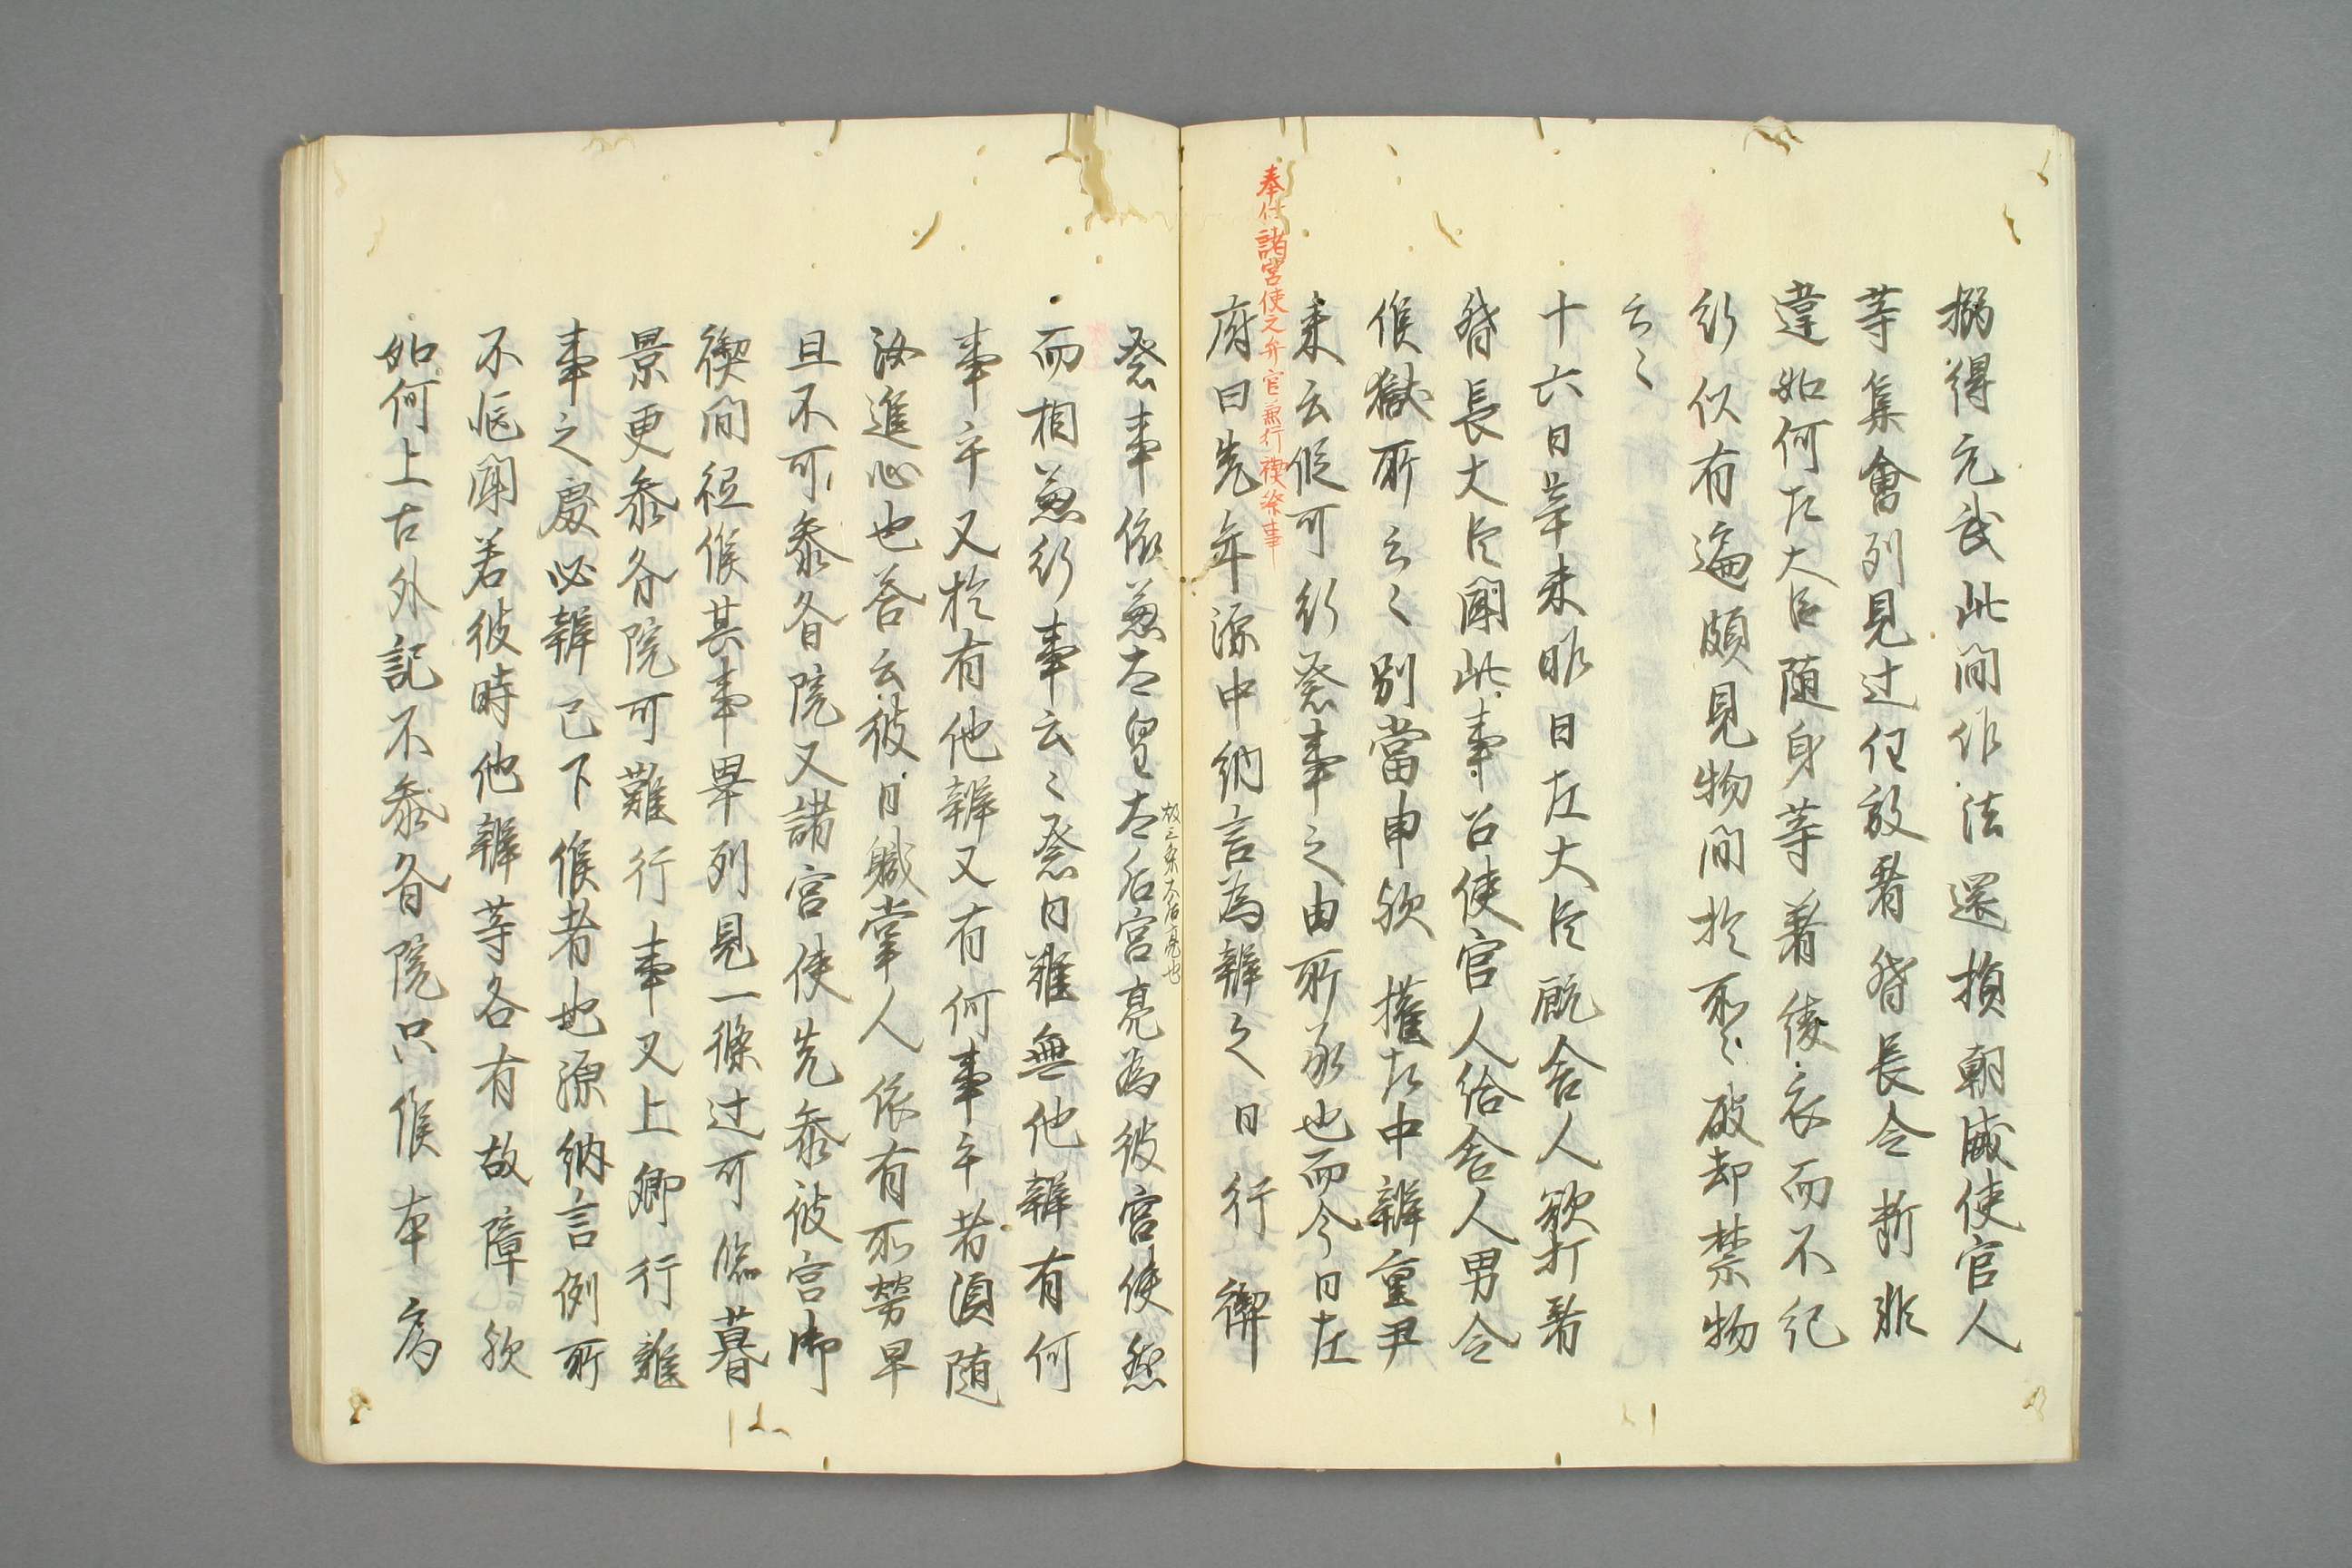 搦得元武此間作法還損朝威使官人
等集會列見辻但放看督長令 制非
違如何左大臣随身等着綾衣而不糺
行似有偏頗見物間於所々破却禁物
云々
十六日辛未昨日左大臣厩舎人欲打看
督長大臣聞此事召使官人給舎人男令
候獄所云々別當申歟 權左中辨重尹
来云假可行祭事之由所承也而今日左
奉仕諸宮使之弁官兼行禊祭事
府曰先年源中納言為辨之日行 禊
祭事依兼太皇太后宮亮為彼宮使然
故三条太后亮也
而相兼行事云々祭日雖無他辨有何
事乎又於有他辨又有何事乎者須随
汝進心也答云彼日職掌人依有所勞早
且不可參斎院又諸宮使先參彼宮御
禊間祗候其事畢列見一條辻可臨暮
景更參斎院可難行事又上卿行雜
事之處必辨已下候者也源納言例所
不慥聞若彼時他辨等各有故障歟
如何上古外記不參斎院只候本 府